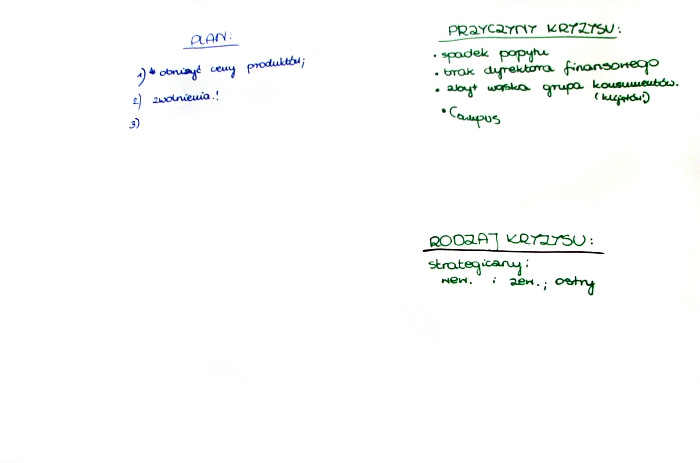 PLAN:
1) obniżyć ceny produktów;
2) zwolnienia.!
3)
PRZYCZYNY KRYZYSU:
• spadek popytu
• brak dyrektora finansowego
• zbyt wąska grupa konsumentów.
(klientów!)
• Campus
RODZAJ KRYZYSU:
strategiczny;
wew. i zew.; ostry